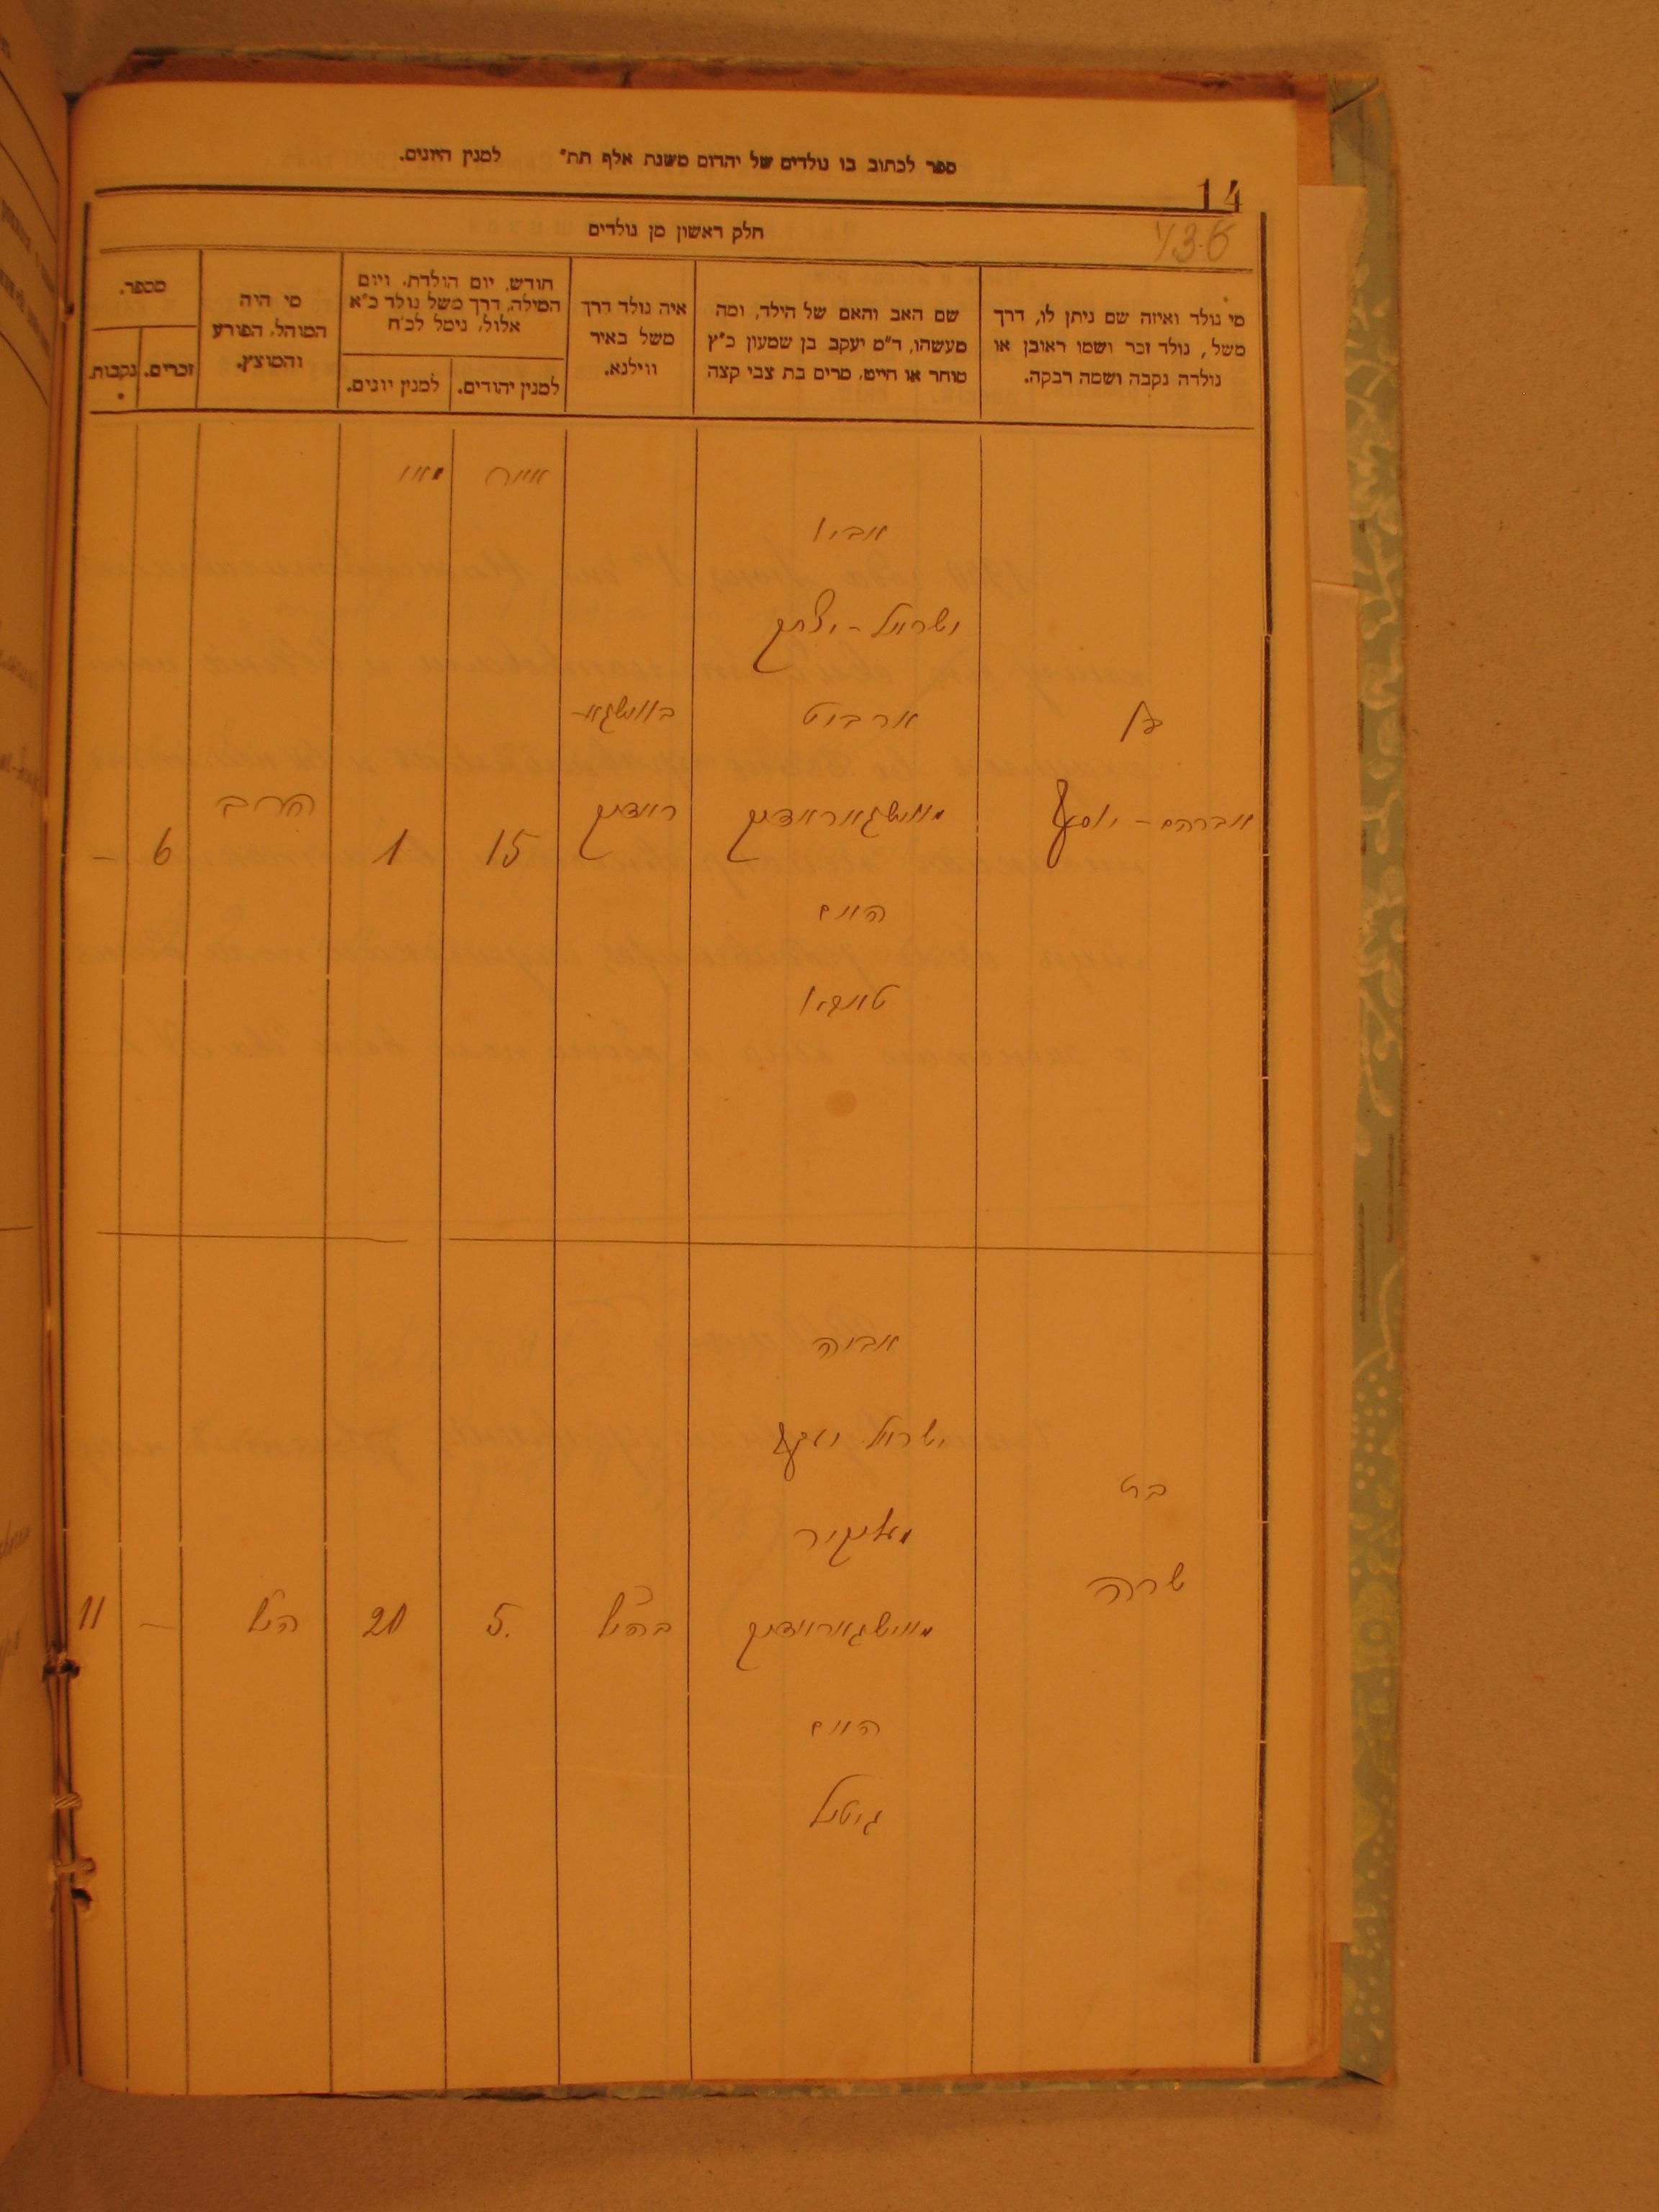 ספר לכתוב בו נולדים של יהדום משנת אלף תת״ למנין היונים.
14
136
חלק ראשון מן נולדים
מי נולד ואיזה שם ניתן לו, דרך
משל, נולד זכר ושמו ראובן או
נולדה נקבה ושמה רבקה.
שם האב והאם של הילד, ומה
מעשהו, ד״מ יעקב בן שמעון כ״ץ
סוחר או חייט, מרים בת צבי קצה
איה נולד דרך
משל באיר
ווילנא.
חודש, יום הולדת, ויום
המילה, דרך משל נולד כ״א
אלול, נימל לכ״ח
למנין יהודים.
למנין יונים.
מי היה
המוהל, הפורע
והמוצץ.
מספר.
זכרים.
נקבות.
אייר
מאי
בן
אברהם - יוסף
אביו
ישראל - יצחק
ארביט
מווישגאראדטק
האם
בווישגא-
ראדטק
15
1
הרב
6
-
בת
שרה
אביה
ישראל יוסף
מווישגאראדטק
האם
גיטל
בהנ״ל
5.
20
הנ״ל
-
11